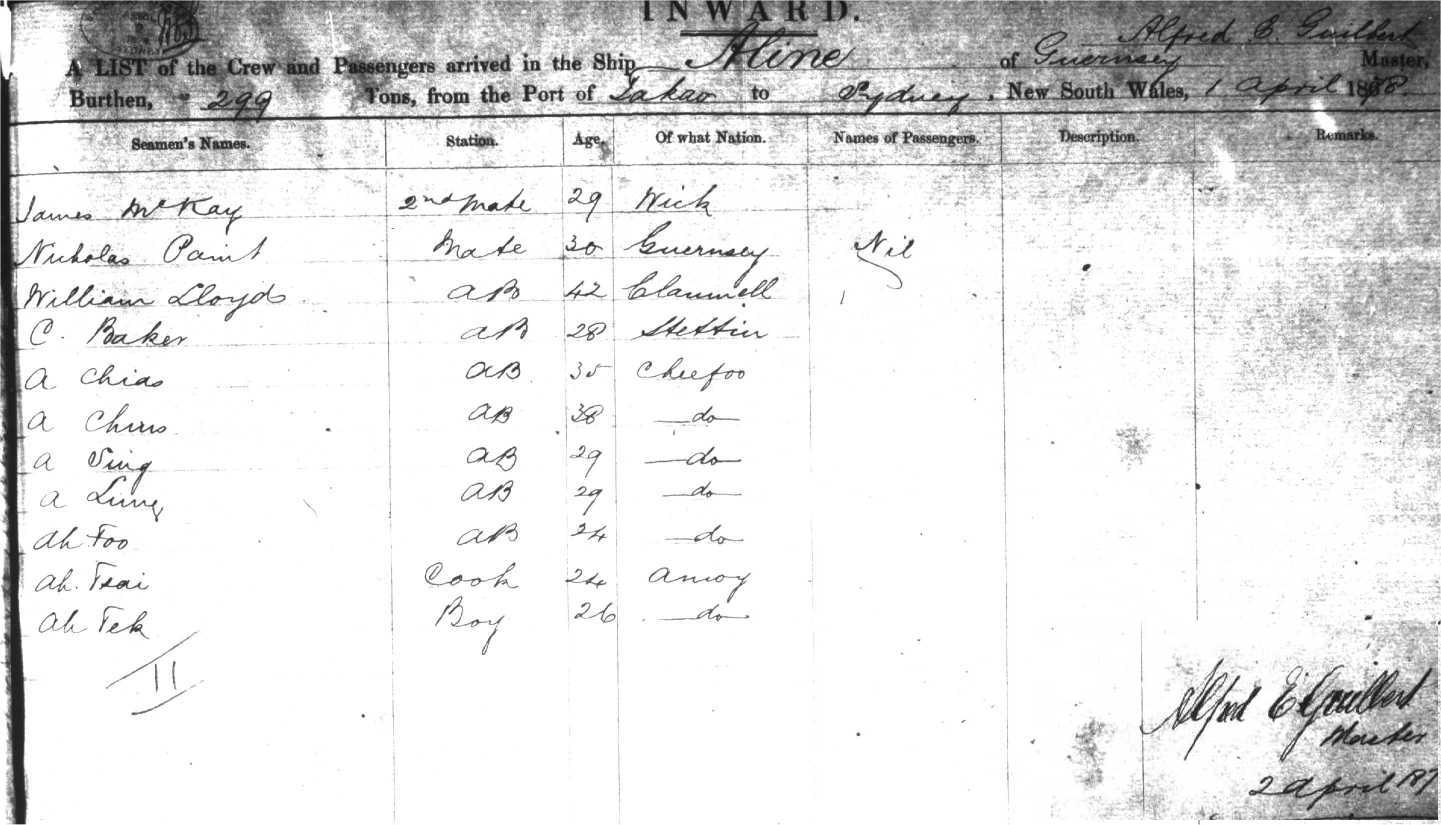 INWARD.
Alfred E. Guilbert
A LIST of the Crew and Passengers arrived in the Ship Aline of Guernsey Master,
Burthen, 299 Tons, from the Port of Takao to Sydney, New South Wales, 1 April
Seamen's Names. Station. Age. Of what Nation. Names of Passengers. Description. Remarks.
James McKay 2nd Mate 29 Wick
Nicholas Paint Mate 30 Guernsey Nil
William Lloyds AB 42 
C. Baker AB 28 Stettin
A Chias AB 35 Cheefoo
A AB 38 do
A Sing AB 29 do
A Lung AB 29 do
Ah Foo AB 24 do
Ah. Tsai Cook 24 Amoy
Ah Tek Boy 26 do
11
Alfred E Guilbert
Master
2 April 187